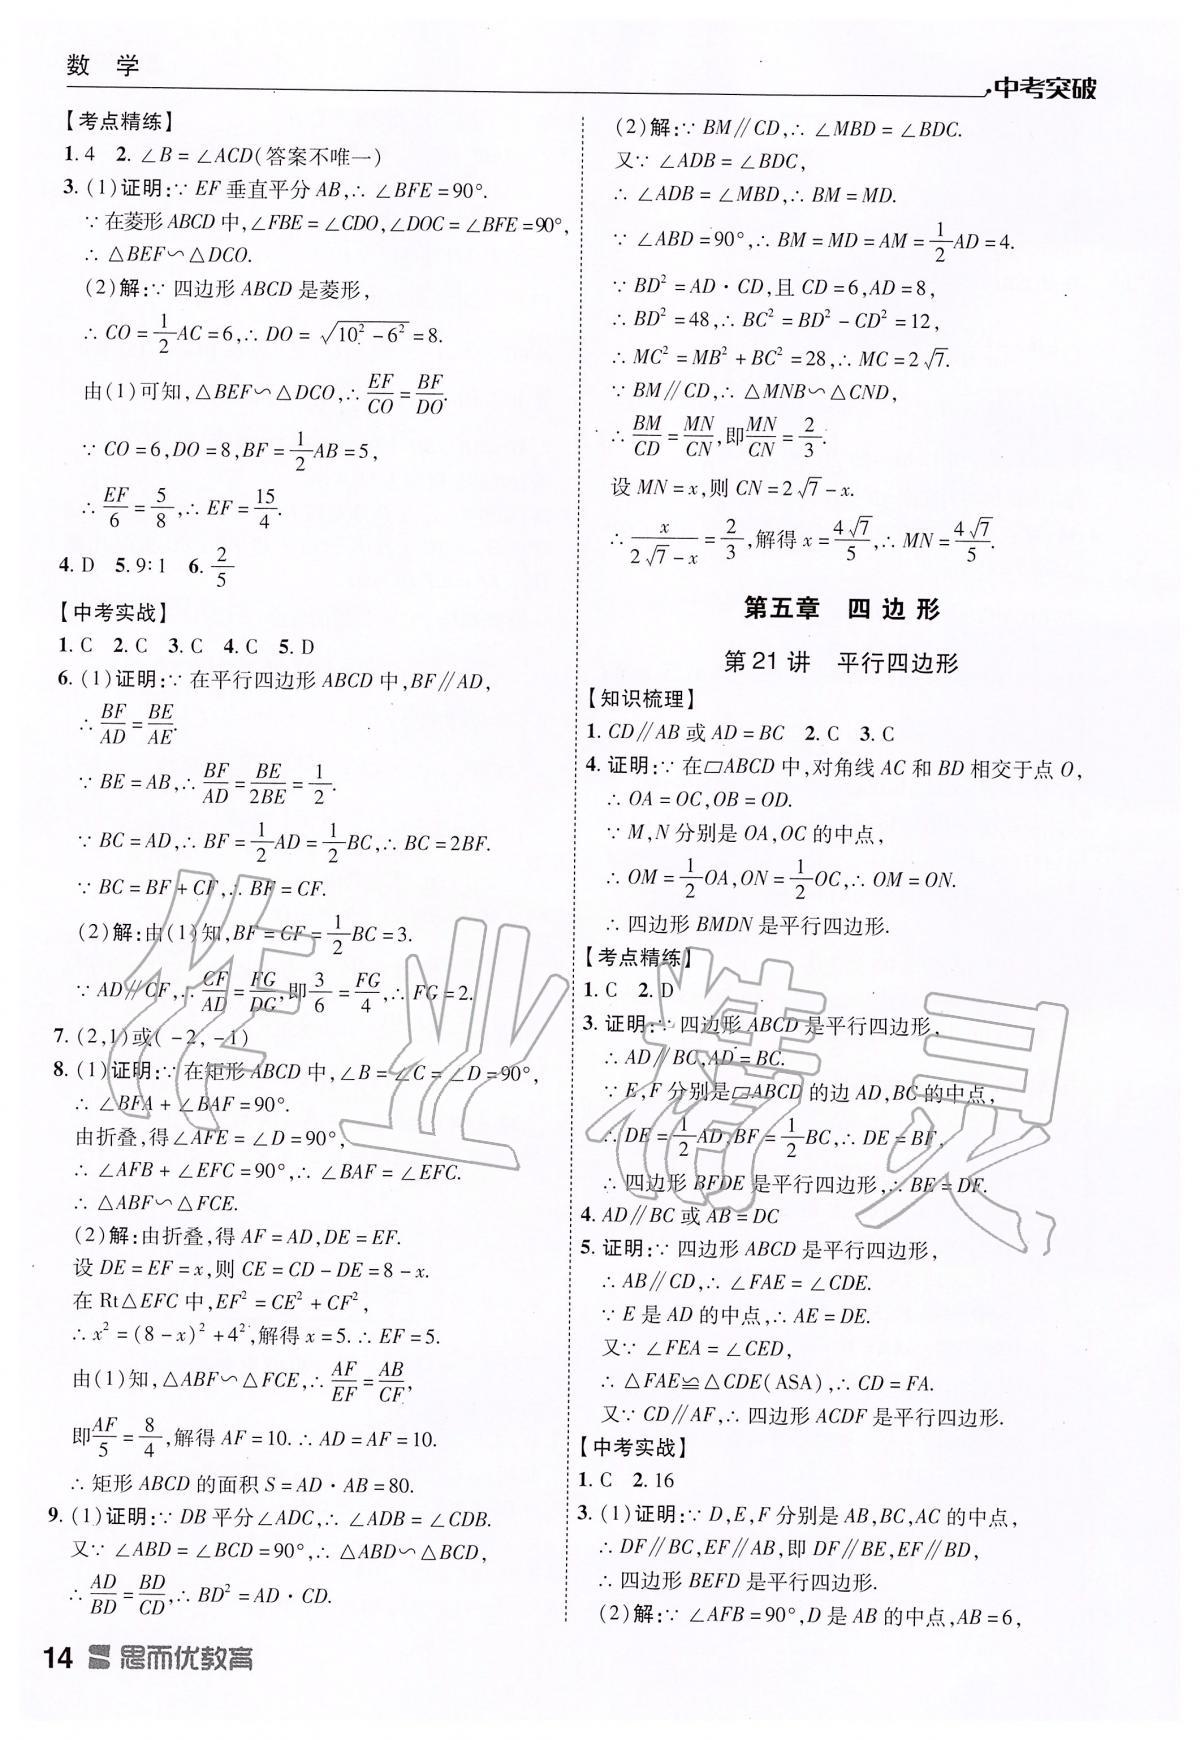 数 学
中考突破
【考点精练】
1. 4 2. ∠B = ∠ACD(答案不唯一)
3. (1)证明:∵ EF 垂直平分 AB,∴ ∠BFE = 90°.
∵ 在菱形 ABCD 中,∠FBE = ∠CDO,∠DOC = ∠BFE = 90°,
∴ △BEF∽△DCO.
(2)解:∵ 四边形 ABCD 是菱形,
∴ CO = 1/2 AC = 6,∴ DO = √(10² - 6²) = 8.
由(1)可知,△BEF∽△DCO,∴ EF/CO = BF/DO.
∵ CO = 6,DO = 8,BF = 1/2 AB = 5,
∴ EF/6 = 5/8,∴ EF = 15/4.
4. D 5. 9∶1 6. 2/5
【中考实战】
1. C 2. C 3. C 4. C 5. D
6. (1)证明:∵ 在平行四边形 ABCD 中,BF∥AD,
∴ BF/AD = BE/AE.
∵ BE = AB,∴ BF/AD = BE/2BE = 1/2.
∵ BC = AD,∴ BF = 1/2 AD = 1/2 BC,∴ BC = 2BF.
∵ BC = BF + CF,∴ BF = CF.
(2)解:由(1)知,BF = CF = 1/2 BC = 3.
∵ AD∥CF,∴ CF/AD = FG/DG,即 3/6 = FG/4,∴ FG = 2.
7. (2,1)或( -2, -1)
8. (1)证明:∵ 在矩形 ABCD 中,∠B = ∠C = ∠D = 90°,
∴ ∠BFA + ∠BAF = 90°.
由折叠,得∠AFE = ∠D = 90°,
∴ ∠AFB + ∠EFC = 90°,∴ ∠BAF = ∠EFC.
∴ △ABF∽△FCE.
(2)解:由折叠,得 AF = AD,DE = EF.
设 DE = EF = x,则 CE = CD - DE = 8 - x.
在 Rt△EFC 中,EF² = CE² + CF²,
∴ x² = (8 - x)² + 4²,解得 x = 5. ∴ EF = 5.
由(1)知,△ABF∽△FCE,∴ AF/EF = AB/CF,
即 AF/5 = 8/4,解得 AF = 10. ∴ AD = AF = 10.
∴ 矩形 ABCD 的面积 S = AD · AB = 80.
9. (1)证明:∵ DB 平分∠ADC,∴ ∠ADB = ∠CDB.
又∵ ∠ABD = ∠BCD = 90°,∴ △ABD∽△BCD,
∴ AD/BD = BD/CD,∴ BD² = AD · CD.
(2)解:∵ BM∥CD,∴ ∠MBD = ∠BDC.
又∵ ∠ADB = ∠BDC,
∴ ∠ADB = ∠MBD,∴ BM = MD.
∵ ∠ABD = 90°,∴ BM = MD = AM = 1/2 AD = 4.
∵ BD² = AD · CD,且 CD = 6,AD = 8,
∴ BD² = 48,∴ BC² = BD² - CD² = 12,
∴ MC² = MB² + BC² = 28,∴ MC = 2√7.
∵ BM∥CD,∴ △MNB∽△CND,
∴ BM/CD = MN/CN,即 MN/CN = 2/3.
设 MN = x,则 CN = 2√7 - x.
∴ x/(2√7 - x) = 2/3,解得 x = 4√7/5,∴ MN = 4√7/5.
第五章 四 边 形
第 21 讲 平行四边形
【知识梳理】
1. CD∥AB 或 AD = BC 2. C 3. C
4. 证明:∵ 在▱ABCD 中,对角线 AC 和 BD 相交于点 O,
∴ OA = OC,OB = OD.
∵ M,N 分别是 OA,OC 的中点,
∴ OM = 1/2 OA,ON = 1/2 OC,∴ OM = ON.
∴ 四边形 BMDN 是平行四边形.
【考点精练】
1. C 2. D
3. 证明:∵ 四边形 ABCD 是平行四边形,
∴ AD∥BC,AD = BC.
∵ E,F 分别是▱ABCD 的边 AD,BC 的中点,
∴ DE = 1/2 AD,BF = 1/2 BC,∴ DE = BF,
∴ 四边形 BFDE 是平行四边形,∴ BE = DF.
4. AD∥BC 或 AB = DC
5. 证明:∵ 四边形 ABCD 是平行四边形,
∴ AB∥CD,∴ ∠FAE = ∠CDE.
∵ E 是 AD 的中点,∴ AE = DE.
又∵ ∠FEA = ∠CED,
∴ △FAE≌△CDE(ASA),∴ CD = FA.
又∵ CD∥AF,∴ 四边形 ACDF 是平行四边形.
【中考实战】
1. C 2. 16
3. (1)证明:∵ D,E,F 分别是 AB,BC,AC 的中点,
∴ DF∥BC,EF∥AB,即 DF∥BE,EF∥BD,
∴ 四边形 BEFD 是平行四边形.
(2)解:∵ ∠AFB = 90°,D 是 AB 的中点,AB = 6,
14 思而优教育
作业精灵